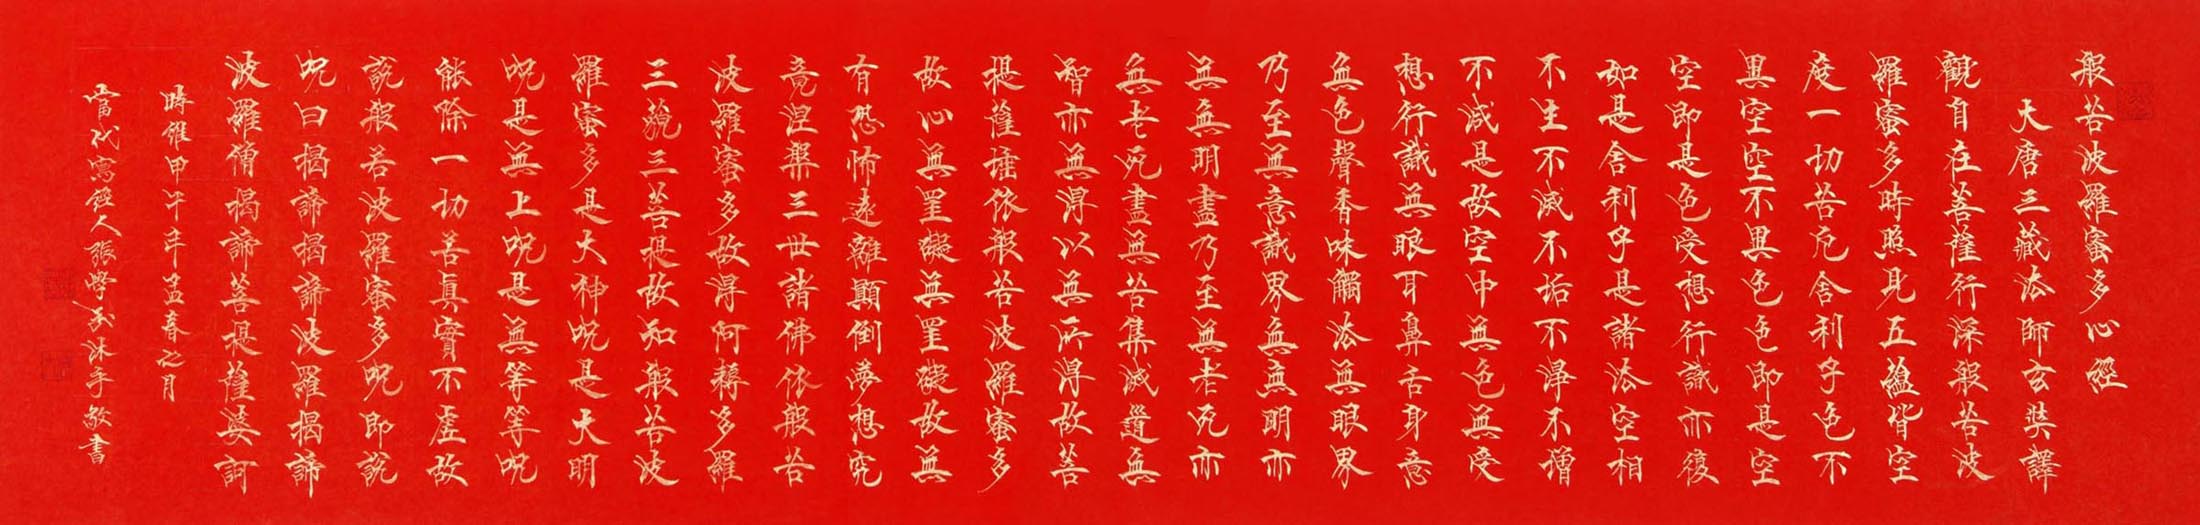 般若波羅蜜多心經
大唐三藏法師玄奘譯
觀自在菩薩行深般若波
羅蜜多時照見五蘊皆空
度一切苦厄舍利子色不
異空空不異色色即是空
空即是色受想行識亦復
如是舍利子是諸法空相
不生不滅不垢不淨不增
不減是故空中無色無受
想行識無眼耳鼻舌身意
無色聲香味觸法無眼界
乃至無意識界無無明亦
無無明盡乃至無老死亦
無老死盡無苦集滅道無
智亦無得以無所得故菩
提薩埵依般若波羅蜜多
故心無罣礙無罣礙故無
有恐怖遠離顛倒夢想究
竟涅槃三世諸佛依般若
波羅蜜多故得阿耨多羅
三藐三菩提故知般若波
羅蜜多是大神咒是大明
咒是無上咒是無等等咒
能除一切苦真實不虛故
說般若波羅蜜多咒即說
咒曰揭諦揭諦波羅揭諦
波羅僧揭諦菩提薩婆訶
時維甲午年孟春之月
當代寫經人張學勇沐手敬書